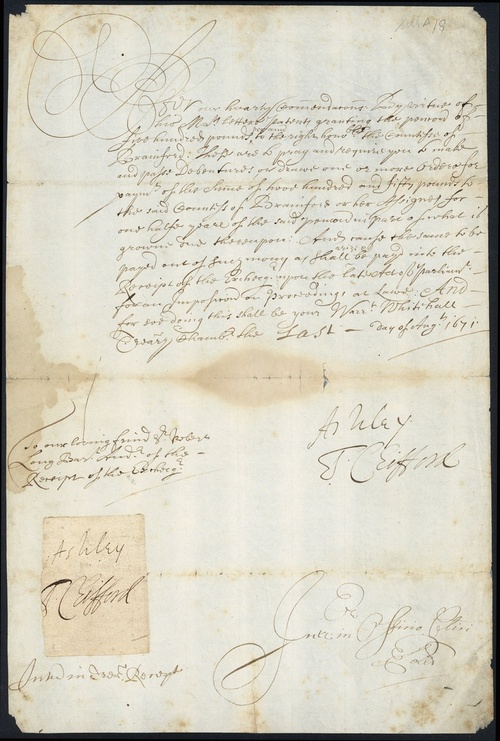 After our hearty Comendations. By virtue of
his Ma.ts letters patents granting the pencon of
five hundred pounds p ann to the right hono.ble the Countess of
Bramford: These are to pray and require you to make
and passe Debentures or drawe one or more Orders for
paym.t of the some of twoe hundred and fifty pounds to
the said Countess of Bramford or her Assignes for
one halfe yeare of the said pencon in part of what is
growen due thereupon: And cause the same to be
payed out of such mony as shall be paid into the
Receipt of the Excheq.r upon the late Act of Parliam.t
for an Imposition on Proceedings at Lawe. And
for soe doing this shall be your Warr.t Whitehall
Trēary Chamb.rs the Last day of Aug.t 1671.
Ashley
T. Clifford
To our loving friend S.r Robert
Long Bar.t Aud.r of the
Receipt of the Excheq.r
Ashley
T Clifford
Ex
Intr: in Officio